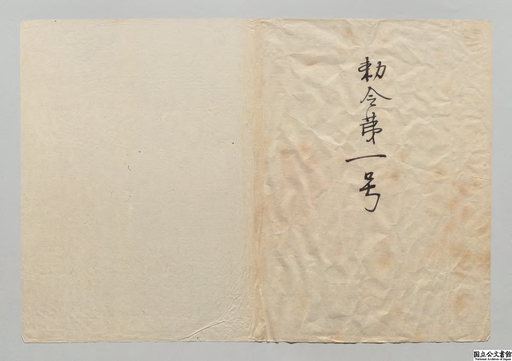 勅令第一号
国立公文書館
National Archives of Japan